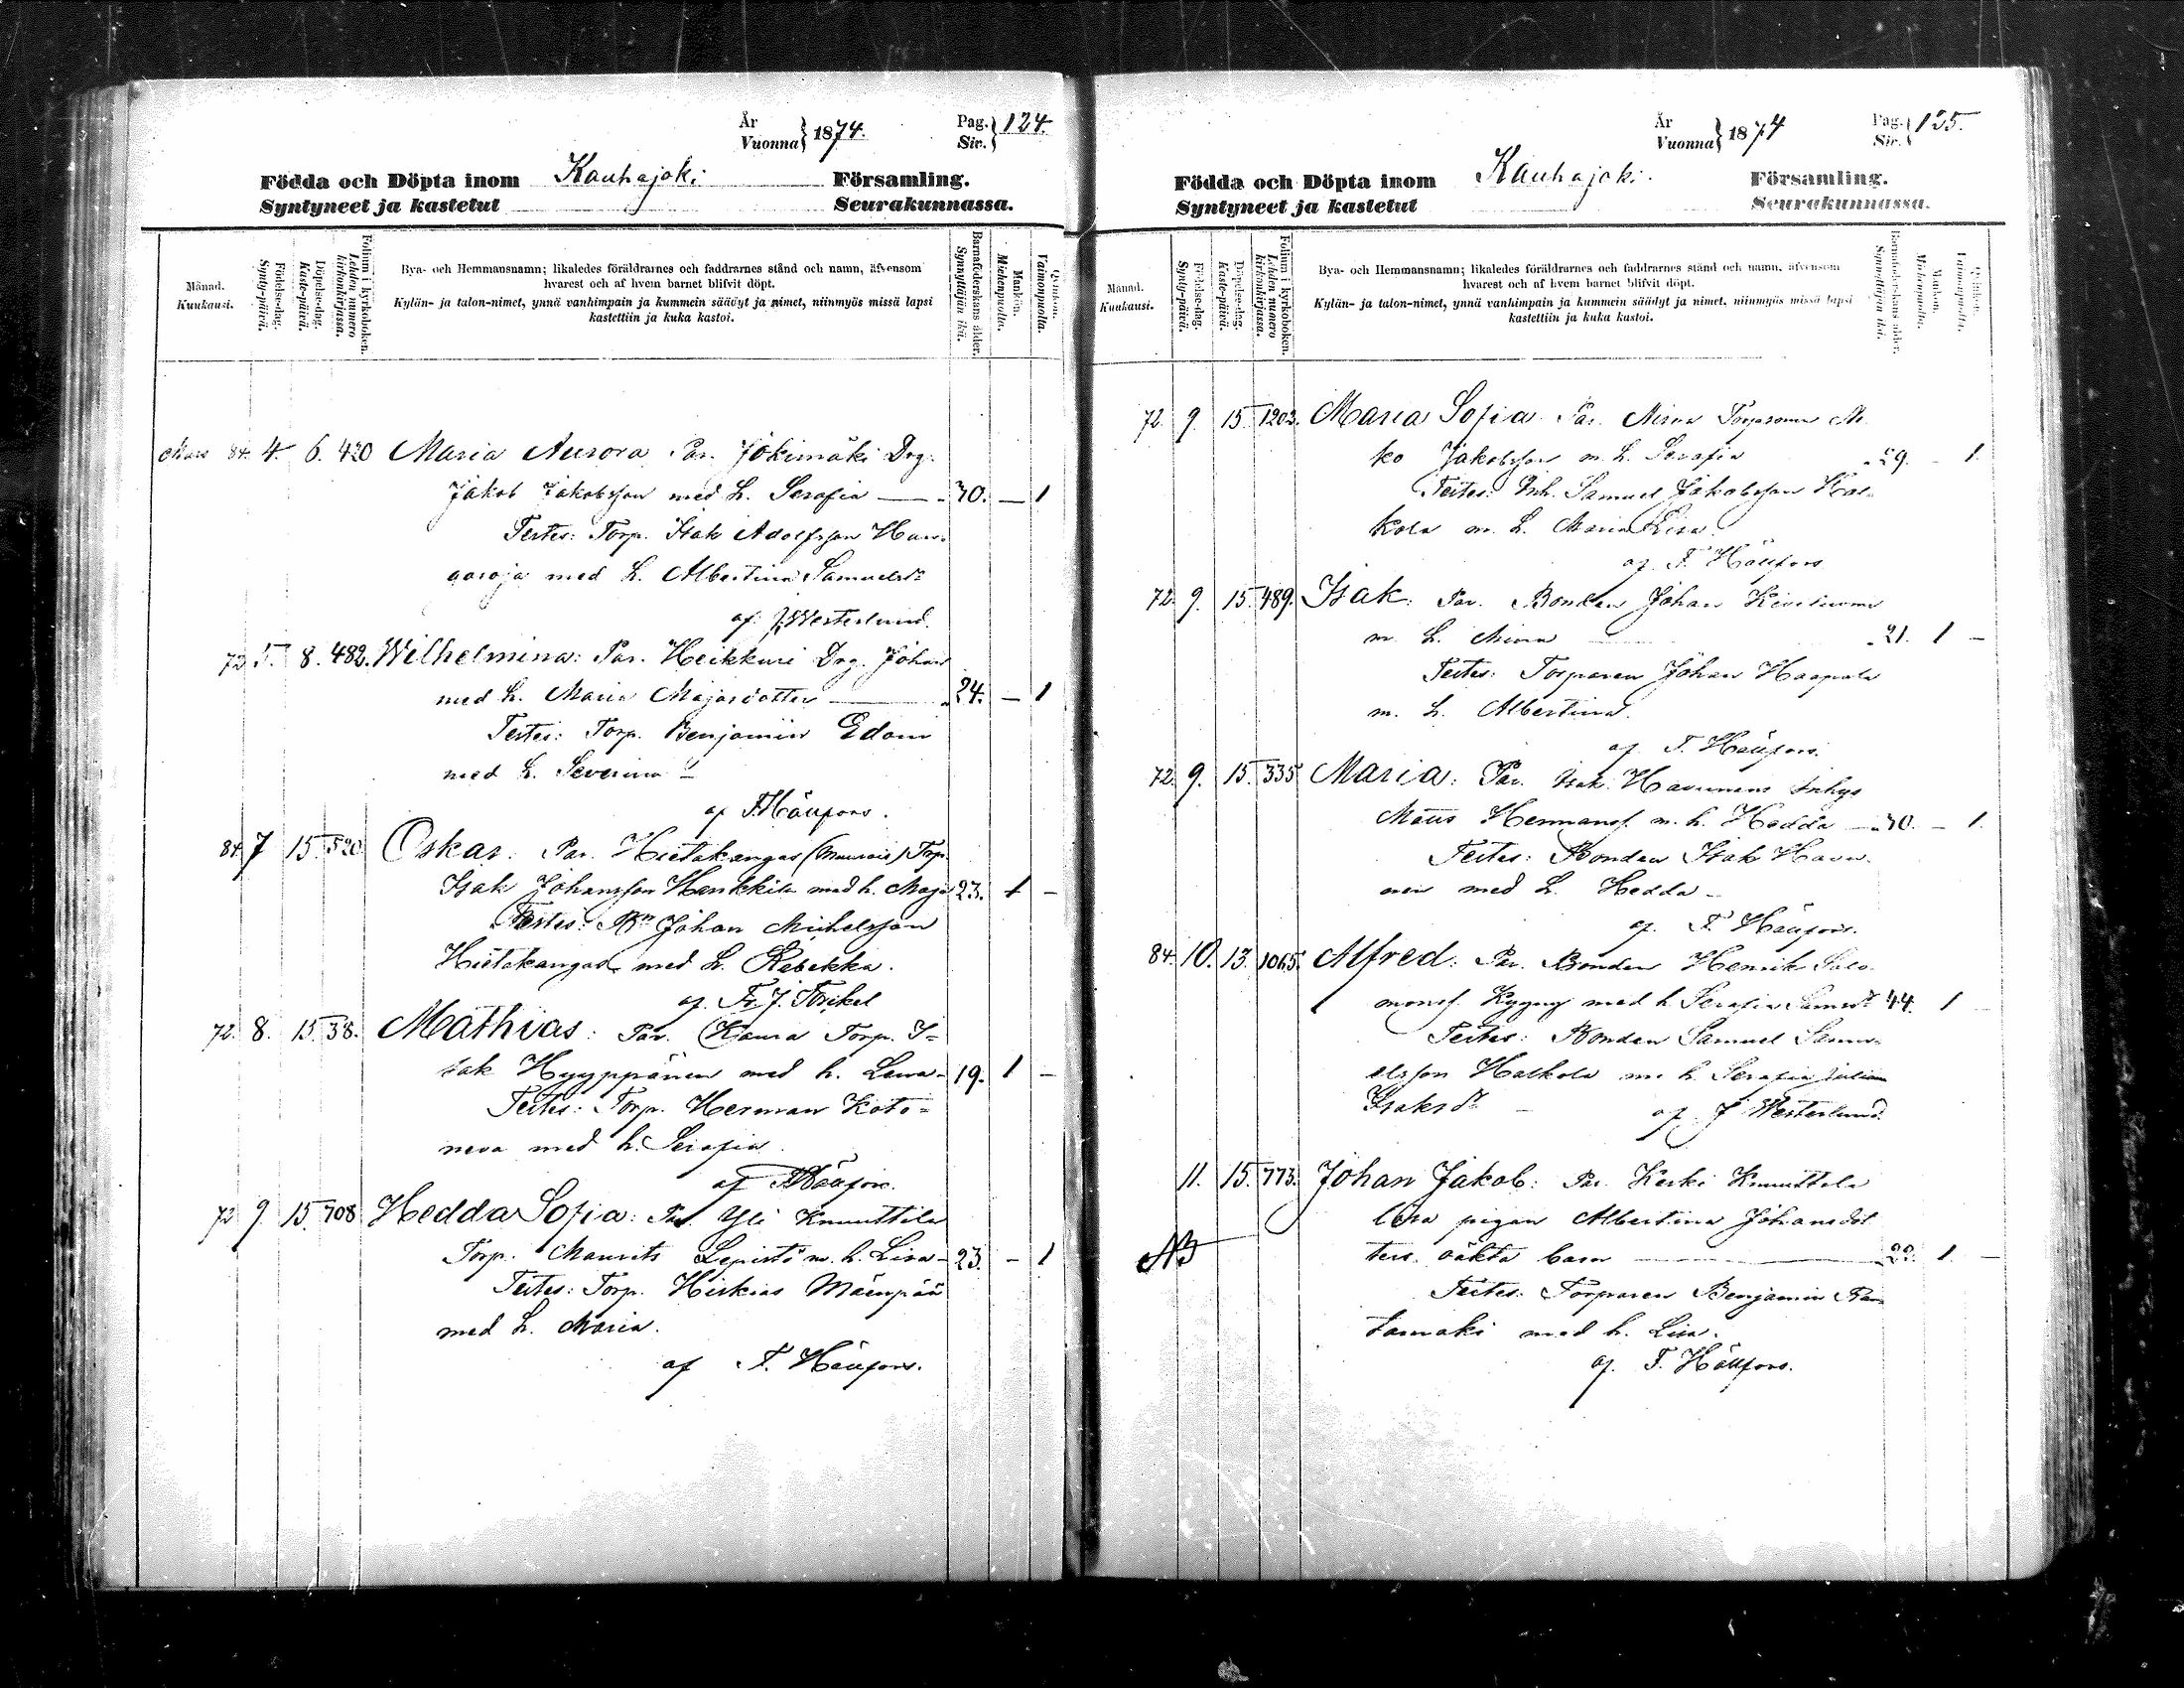 År
Vuonna } 1874.
Pag.
Siv. } 124.
Födda och Döpta inom Kauhajoki Församling.
Syntyneet ja kastetut Seurakunnassa.
Månad.
Kuukausi.
Födelse-dag.
Synty-päivä.
Döpelse-dag.
Kaste-päivä.
Folium i kyrkoboken.
Lehden numero kirkonkirjassa.
Bya- och Hemmansnamn; likaledes föräldrarnes och faddrarnes stånd och namn, äfvensom
hvarest och af hvem barnet blifvit döpt.
Kylän- ja talon-nimet, ynnä vanhimpain ja kummein säädyt ja nimet, niinmyös missä lapsi
kastettiin ja kuka kastoi.
Barnaföderskans ålder.
Synnyttäjän ikä.
Mankön.
Miehenpuolta.
Qvinkön.
Vaimonpuolta.
Mars 84. 4. 6. 420 Maria Aurora. Par. Jokimäki Drg.
Jakob Jakobsson med h. Serafia — 30. — 1
Testes: Torp. Isak Adolfsson
med h. Albertina Samuelsdr
af J. Westerlund.
72 5. 8. 482. Wilhelmina: Par. Heikkuri Drg. Johan
med h. Maria Majasdotter — 24. — 1
Testes: Torp. Benjamin
med h. Severina
af F. Häufors.
84. 7 15. 520 Oskar. Par. Hietakangas Torp.
Isak Johansson med h. Maja 23. 1 —
Testes: Bn Johan Michelsson
Hietakangas med h. Rebekka.
af Fr. J. Forikel
72. 8. 15. 38. Mathias: Par. Kaura Torp. I=
sak Hyyppänen med h. Lena - 19. 1 —
Testes: Torp. Herman Koto=
neva med h. Serafia.
af F. Häufors.
72 9. 15. 708 Hedda Sofia: Par. Yli Knuuttila
Torp. Maurits Lepistö m. h. Lisa - 23. — 1
Testes: Torp. Hiskias Mäenpää
med h. Maria.
af F. Häufors.
År
Vuonna } 1874
Pag.
Siv. } 125.
Födda och Döpta inom Kauhajoki. Församling.
Syntyneet ja kastetut Seurakunnassa.
Månad.
Kuukausi.
Födelse-dag.
Synty-päivä.
Döpelse-dag.
Kaste-päivä.
Folium i kyrkoboken.
Lehden numero kirkonkirjassa.
Bya- och Hemmansnamn; likaledes föräldrarnes och faddrarnes stånd och namn, äfvensom
hvarest och af hvem barnet blifvit döpt.
Kylän- ja talon-nimet, ynnä vanhimpain ja kummein säädyt ja nimet, niinmyös missä lapsi
kastettiin ja kuka kastoi.
Barnaföderskans ålder.
Synnyttäjän ikä.
Mankön.
Miehenpuolta.
Qvinkön.
Vaimonpuolta.
72. 9. 15. 1203. Maria Sofia. Par.
Jakobsson m. h. Serafia 29. — 1.
Testes: Inh. Samuel Jakobsson
kola m. h. Maria Lisa.
af F. Häufors
72. 9. 15. 489. Isak: Par. Bonden Johan
m. h. Miina 21. 1 —
Testes: Torparen Johan Haapala
m. h. Albertina.
af F. Häufors.
72. 9. 15. 335 Maria: Par. Isak Havunens Inhys
Matts Hermansf. m. h. Hedda — 30. — 1.
Testes: Bonden Isak Havu-
nen med h. Hedda —
af F. Häufors.
84. 10. 13. 1065. Alfred: Par. Bonden Henrik Salo-
monsf. Kyyny med h. Serafia Samsdr 44. 1
Testes: Bonden Samuel Samu-
elsson Halkola m. h. Serafia Julian
Isaksdr — af J Westerlund.
11. 15. 773. Johan Jakob: Par. Keski Knuuttila
lösa pigan Albertina Johansdot
NB ters oäkta barn — 23. 1. —
Testes: Torparen Benjamin
tamäki med h. Lisa.
af F. Häufors.